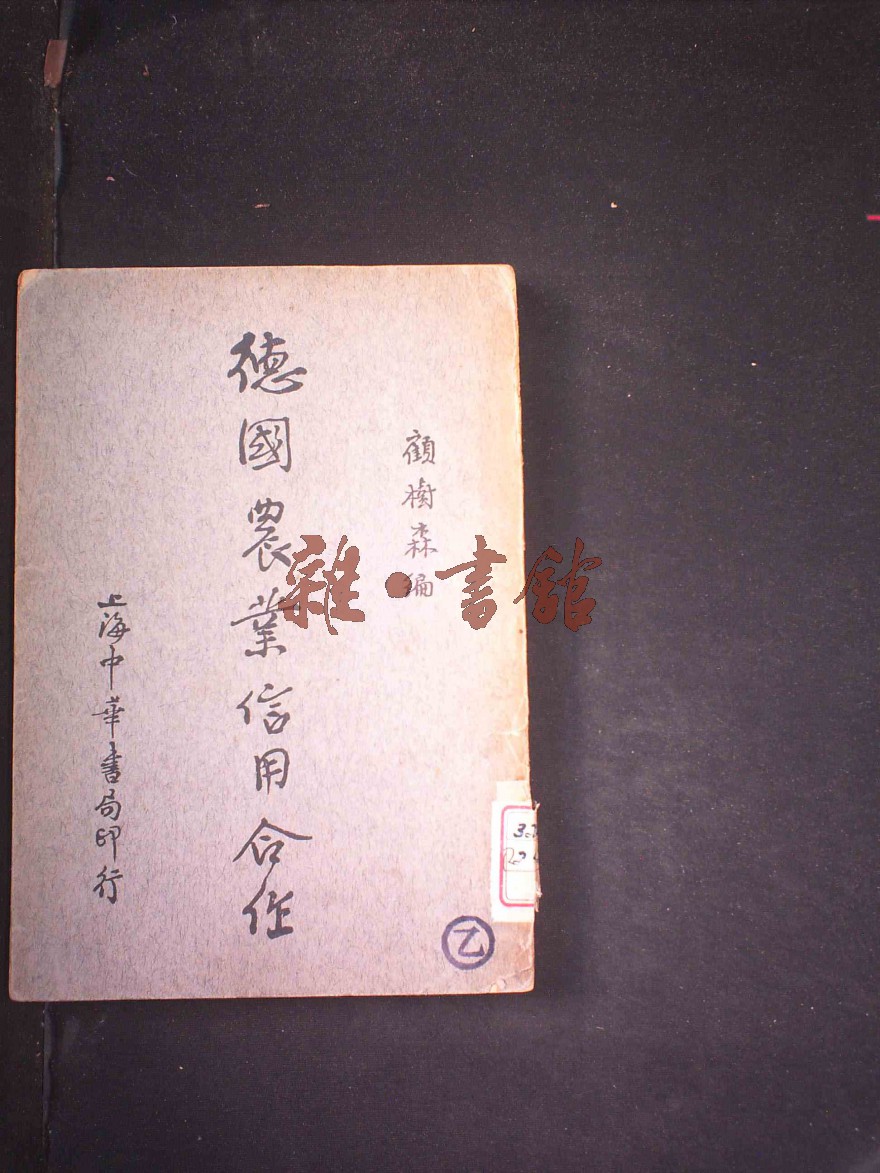 顧樹森編
德國農業信用合作
上海中華書局印行
雜·書館
乙